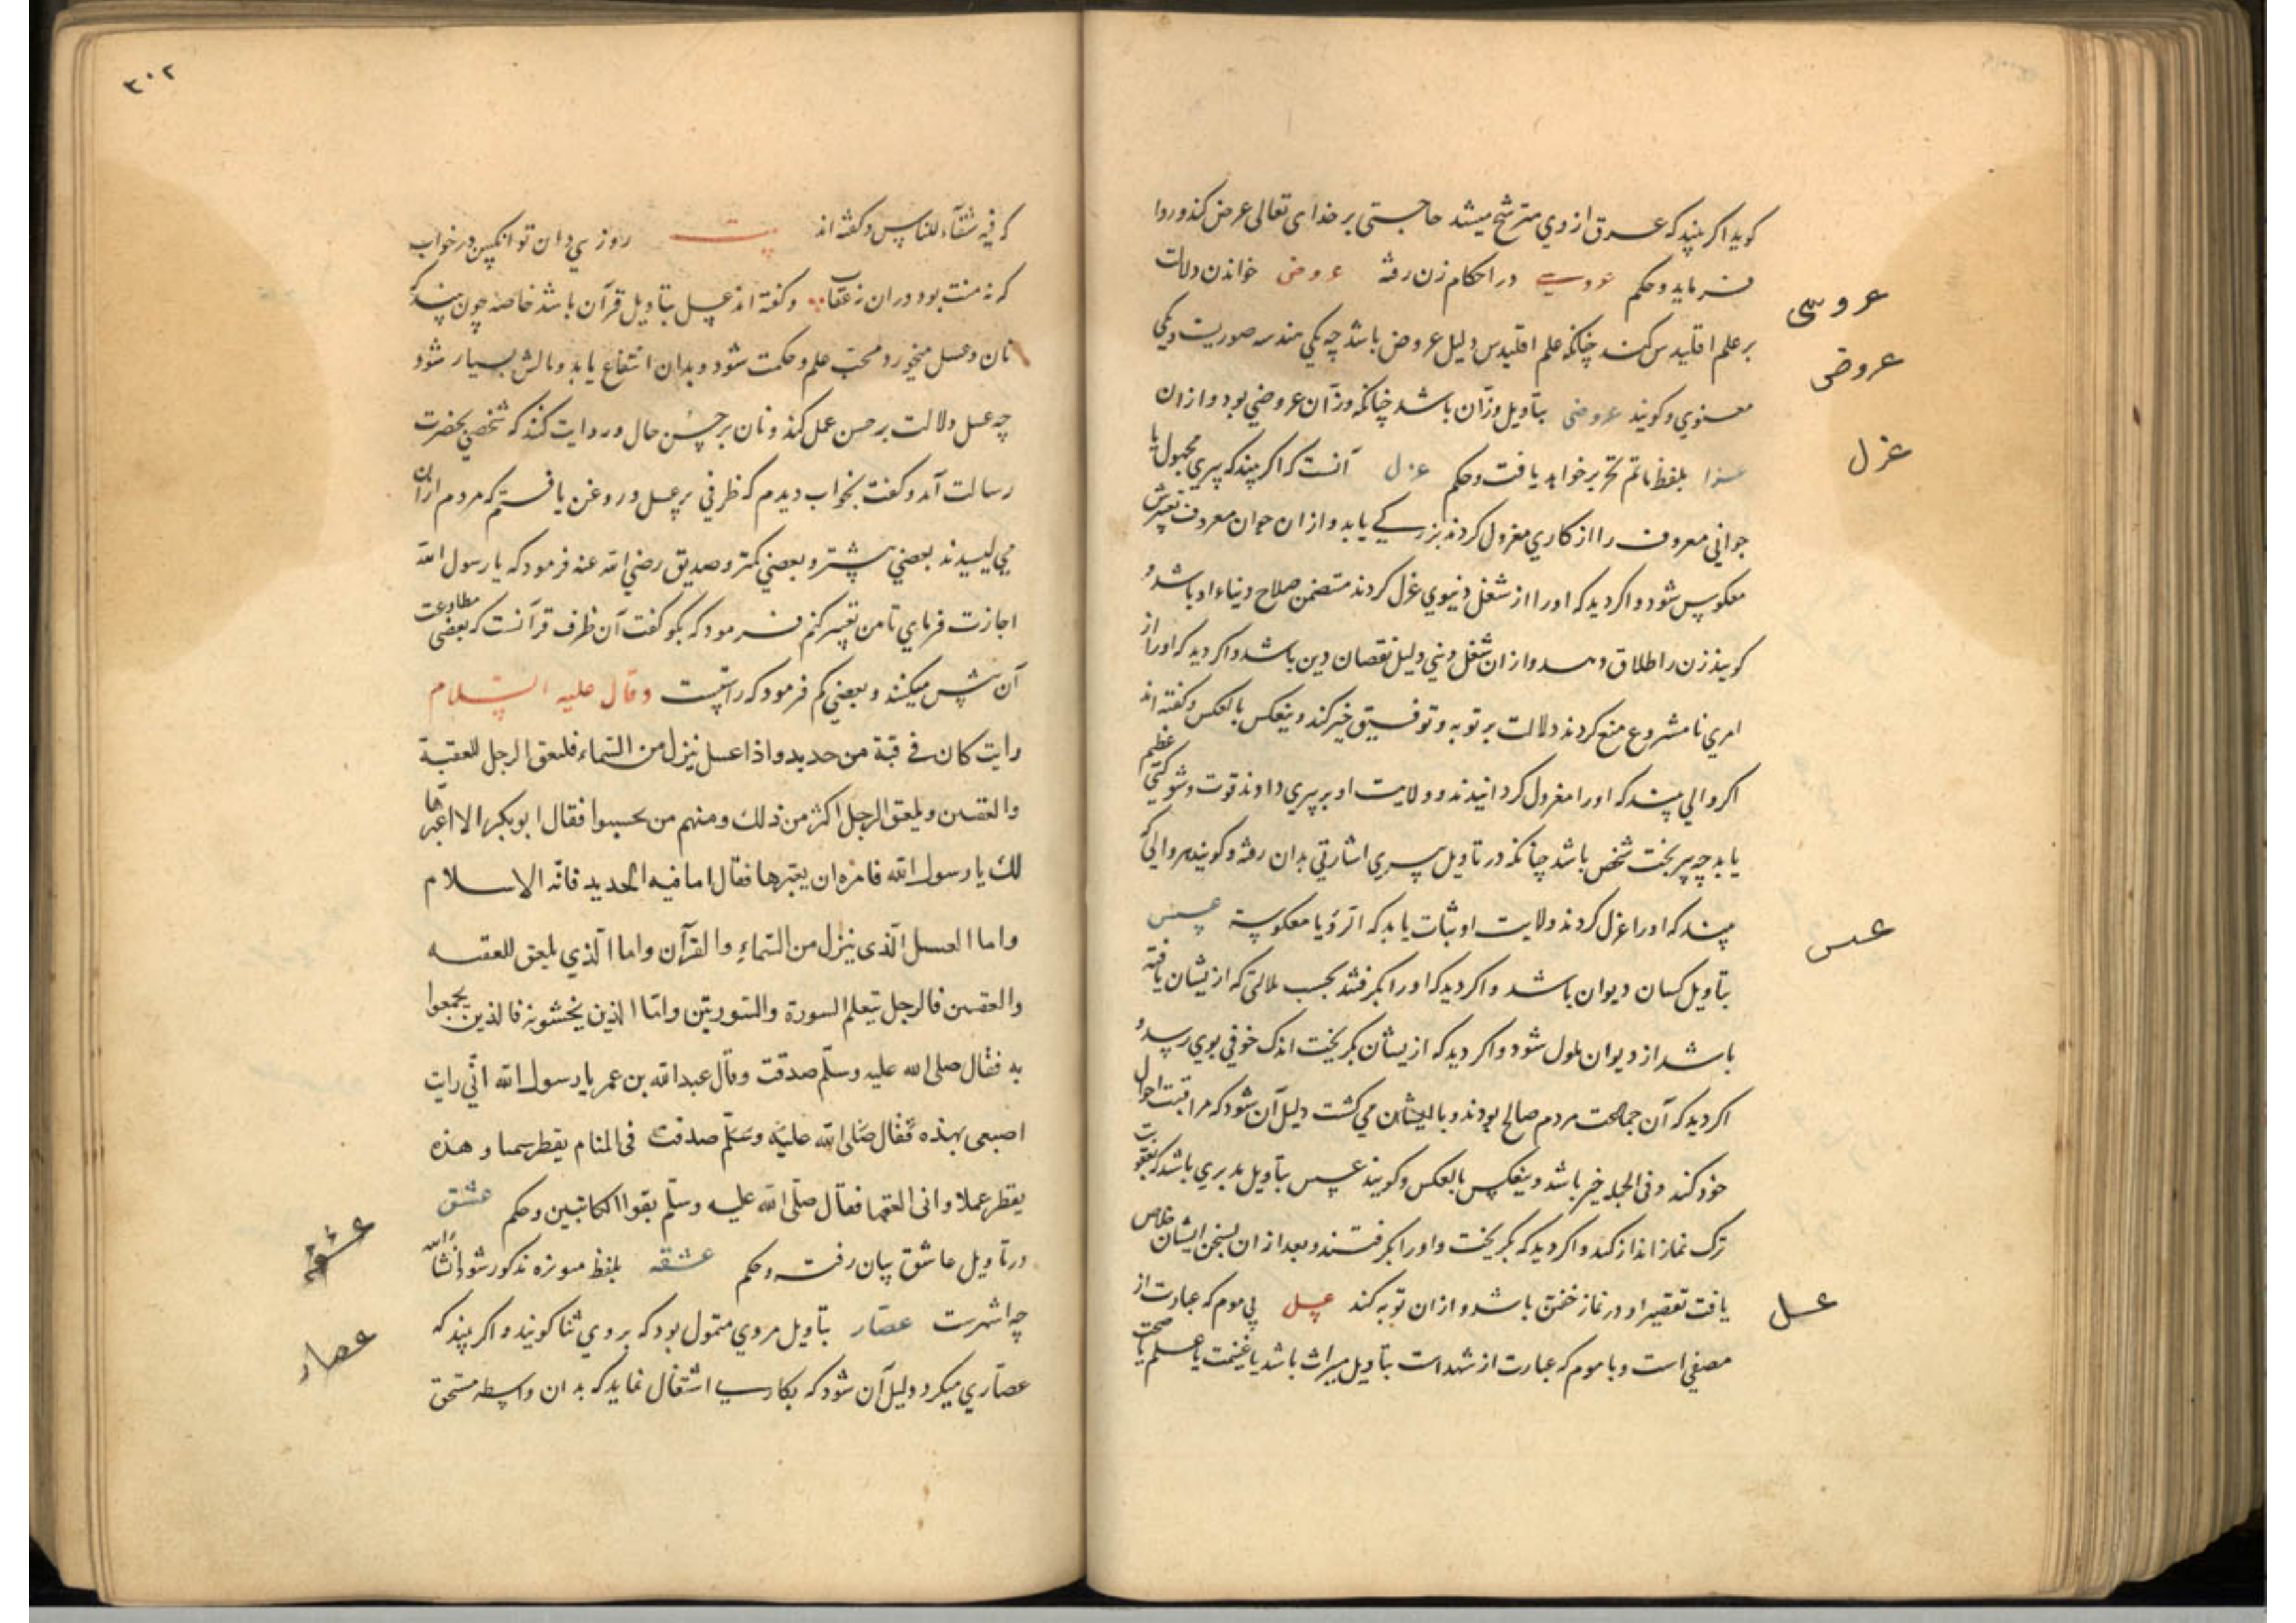 کوید اکر بیند که عرق از وی مترشح میشد حاجتی بر خدای تعالی عرض کند و روا
فرماید و حکم عروسی در احکام زن رفته عروض خواندن دلالت
عروسی
بر علم اقلیدس کند چنانکه علم اقلیدس دلیل عروض باشد چه یکی هندسه صوریت و یکی
عروض
معنوی و کویند عروضی بتاویل وزان باشد چنانکه وزان عروضی بود و ازان
عزا بلفظ ماتم تحریر خواهد یافت و حکم عزل آنست که اکر بیند که پیری مجهول یا
عزل
جوانی معروف را از کاری معزول کردند بزرکی یابد و ازان جوان معروف تعبیرش
معکوس شود و اکر دید که او را از شغل دنیوی عزل کردند متضمن صلاح دنیاء او باشد و
کویند زن را طلاق دهد و ازان شغل دینی دلیل نقصان دین باشد و اکر دید که او را از
امری نامشروع منع کردند دلالت بر توبه و توفیق خیر کند و ینعکس بالعکس و کفته اند
اکر والی بیند که او را معزول کردانیدند و ولایت او بر پیری دادند قوت و شوکتی عظیم
یابد چه پیر بخت شخص باشد چنانکه در تاویل پیری اشارتی بدان رفته و کویند هر والی که
بیند که او را عزل کردند ولایت او ثبات یابد که اثر رؤیا معکوسیة عسس
عسس
بتاویل کسان دیوان باشد و اکر دید که او را بکرفتند بحسب ملالتی که ازیشان یافته
باشد از دیوان ملول شود و اکر دید که ازیشان بکریخت اندک خوفی بوی رسد و
اکر دید که آن جماعت مردم صالح بودند و با ایشان می کشت دلیل آن شود که مراقبت احوال
خود کند و فی الجمله خیر باشد و ینعکس بالعکس و کویند عسس بتاویل مدبری باشد که بعقوبت
ترک نماز انذار کند و اکر دید که بکریخت و او را بکرفتند و بعد ازان بسخن ایشان خلاص
یافت تقصیر او در نماز خفتن باشد و ازان توبه کند عسل بی موم که عبارت از
عسل
مصفی است و با موم که عبارت از شهد است بتاویل میراث باشد یا غنیمت یا علم یا صحت
٣٠٢
که فیه شفآء للناس و کفته اند بیت روزی دان تو انکبین در خواب
که نه منت بود دران نه عقاب و کفته اند عسل بتاویل قرآن باشد خاصه چون بیند که
نان و عسل میخورد محب علم و حکمت شود و بدان انتفاع یابد و مالش بسیار شود
چه عسل دلالت بر حسن عمل کند و نان بر حسن حال و روایت کنند که شخصی بحضرت
رسالت آمد و کفت بخواب دیدم که ظرفی پر عسل و روغن یافتم که مردم ازان
می لیسیدند بعضی بیشتر و بعضی کمتر و صدیق رضی الله عنه فرمود که یا رسول الله
اجازت فرمای تا من تعبیر کنم فرمود که بکو کفت آن ظرف قرآنست که بعضی مطاوعت
آن بیش میکنند و بعضی کم فرمود که راستست وقال علیه السلام
رایت کان فی قبة من حدید و اذا عسل ینزل من السماء فلعق الرجل للعقة
والعقتین ویلعق الرجل اکثر من ذلك ومنهم من یحسوا فقال ابو بکر الا اعبرها
لك یا رسول الله فامره ان یعبرها فقال اما فیه الحدید فانه الاسلام
واما العسل الذی ینزل من السماء والقرآن واما الذی یلعق للعقة
والعقتین فالرجل یتعلم السورة والسورتین واما الذین یخشونه فالذین یجمعوا
به فقال صلی الله علیه وسلم صدقت وقال عبد الله بن عمر یا رسول الله انی رایت
اصبعی بهذه فقال صلی الله علیه وسلم صدقت فی المنام یقطر سمنا و هذه
یقطر عسلا وانی العقها فقال صلی الله علیه وسلم بقوا الکتابین وحکم عشق
در تاویل عاشق بیان رفت و حکم عشقه بلفظ مویزه مذکور شود انشاالله
عشقه
چه اشهرست عصار بتاویل مردی متمول بود که بر وی ثنا کویند و اکر بیند که
عصار
عصاری میکرد دلیل آن شود که بکاری اشتغال نماید که بدان واسطه مستحق